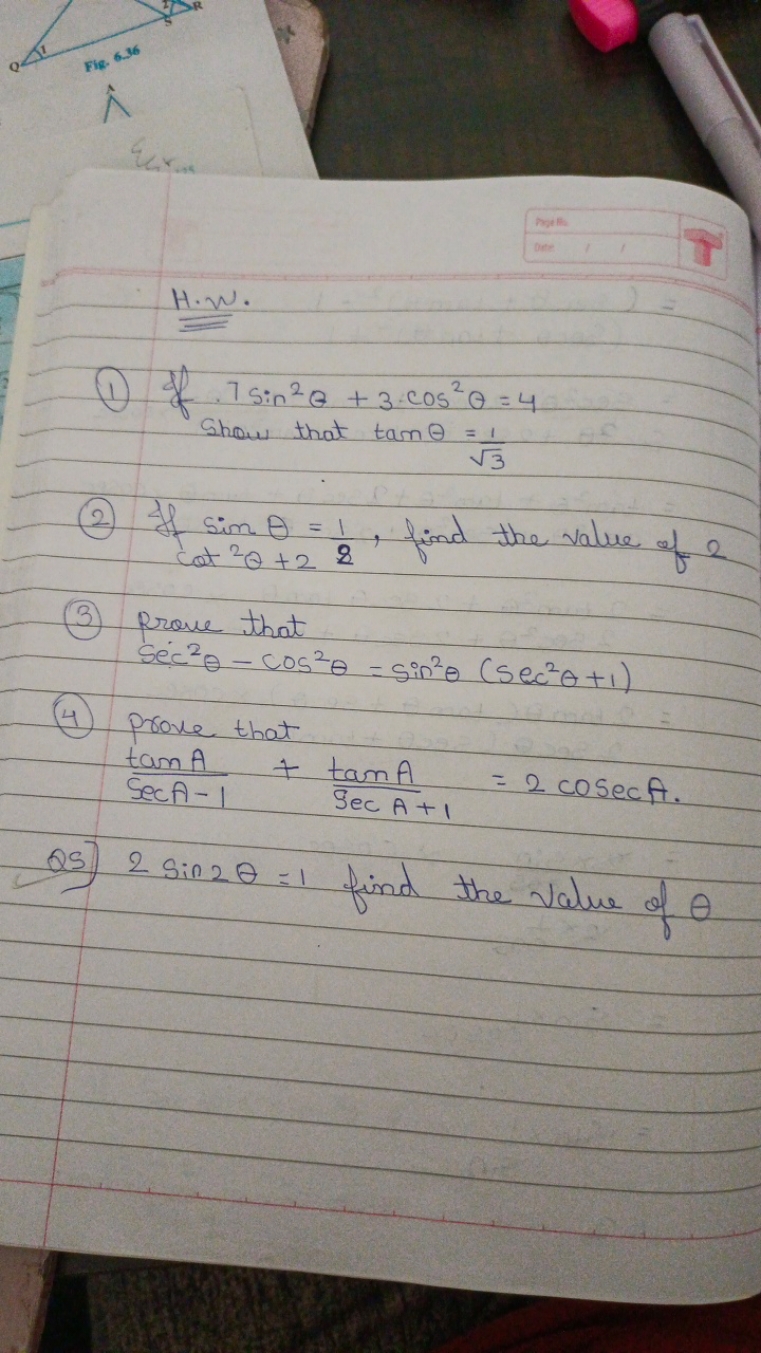 Q
1
2
S
R
Fig. 6.36
A
Page No.
Date / /
H.W.
① If 7 sin²θ + 3 cos²θ = 4
Show that tanθ = 1/√3
② If sin θ = 1/2, find the value of 2
cot²θ + 2
③ prove that
sec²θ - cos²θ = sin²θ (sec²θ + 1)
④ prove that
tan A/Sec A - 1 + tan A/Sec A + 1 = 2 cosec A.
Q5] 2 sin 2θ = 1 find the value of θ